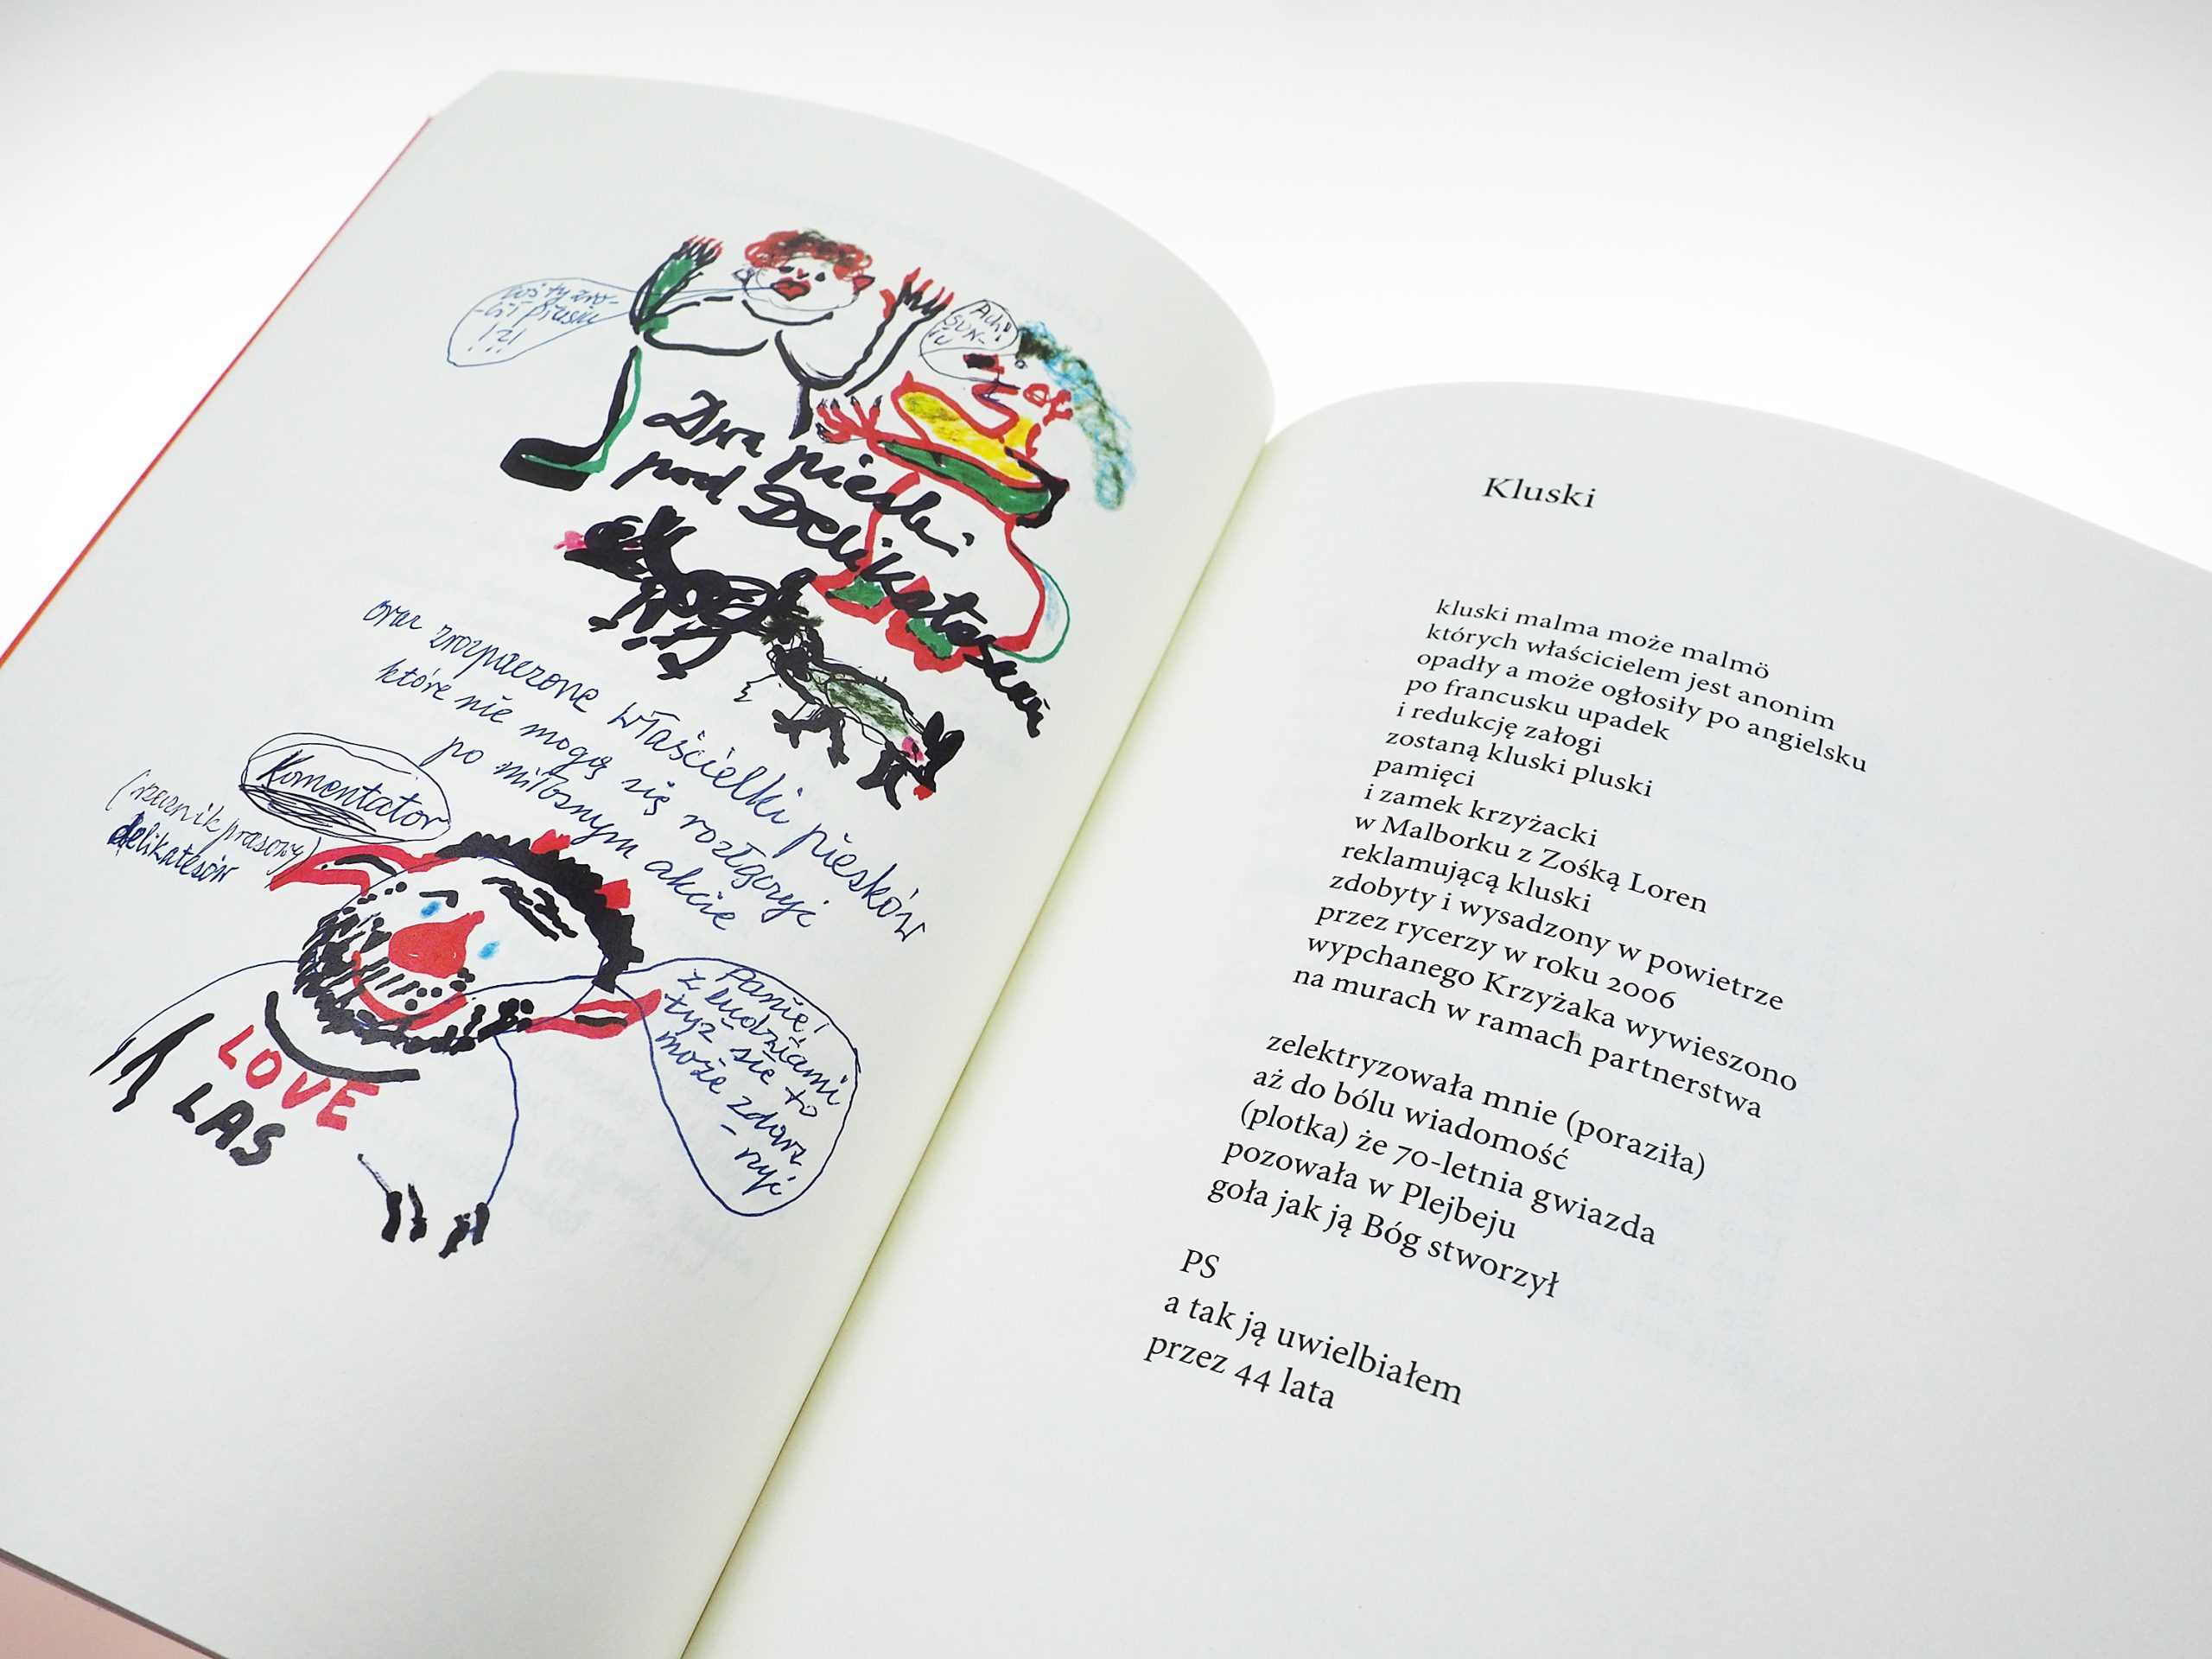 Coś ty zro-
-bił Piesiu
!?!
Ach!
SUN-
IU
Dwa pieski
pod Delikatesami
oraz zrozpaczone właścicielki piesków
które nie mogą się rozłączyć
po miłosnym akcie
Komentator
(rzecznik prasowy)
delikatesów
Panie!
z ludziami
tyż się to
może zdarz
-ryć
LOVE
LAS
Kluski
kluski malma może malmö
których właścicielem jest anonim
opadły a może ogłosiły po angielsku
po francusku upadek
i redukcję załogi
zostaną kluski pluski
pamięci
i zamek krzyżacki
w Malborku z Zośką Loren
reklamującą kluski
zdobyty i wysadzony w powietrze
przez rycerzy w roku 2006
wypchanego Krzyżaka wywieszono
na murach w ramach partnerstwa
zelektryzowała mnie (poraziła)
aż do bólu wiadomość
(plotka) że 70-letnia gwiazda
pozowała w Plejbeju
goła jak ją Bóg stworzył
PS
a tak ją uwielbiałem
przez 44 lata